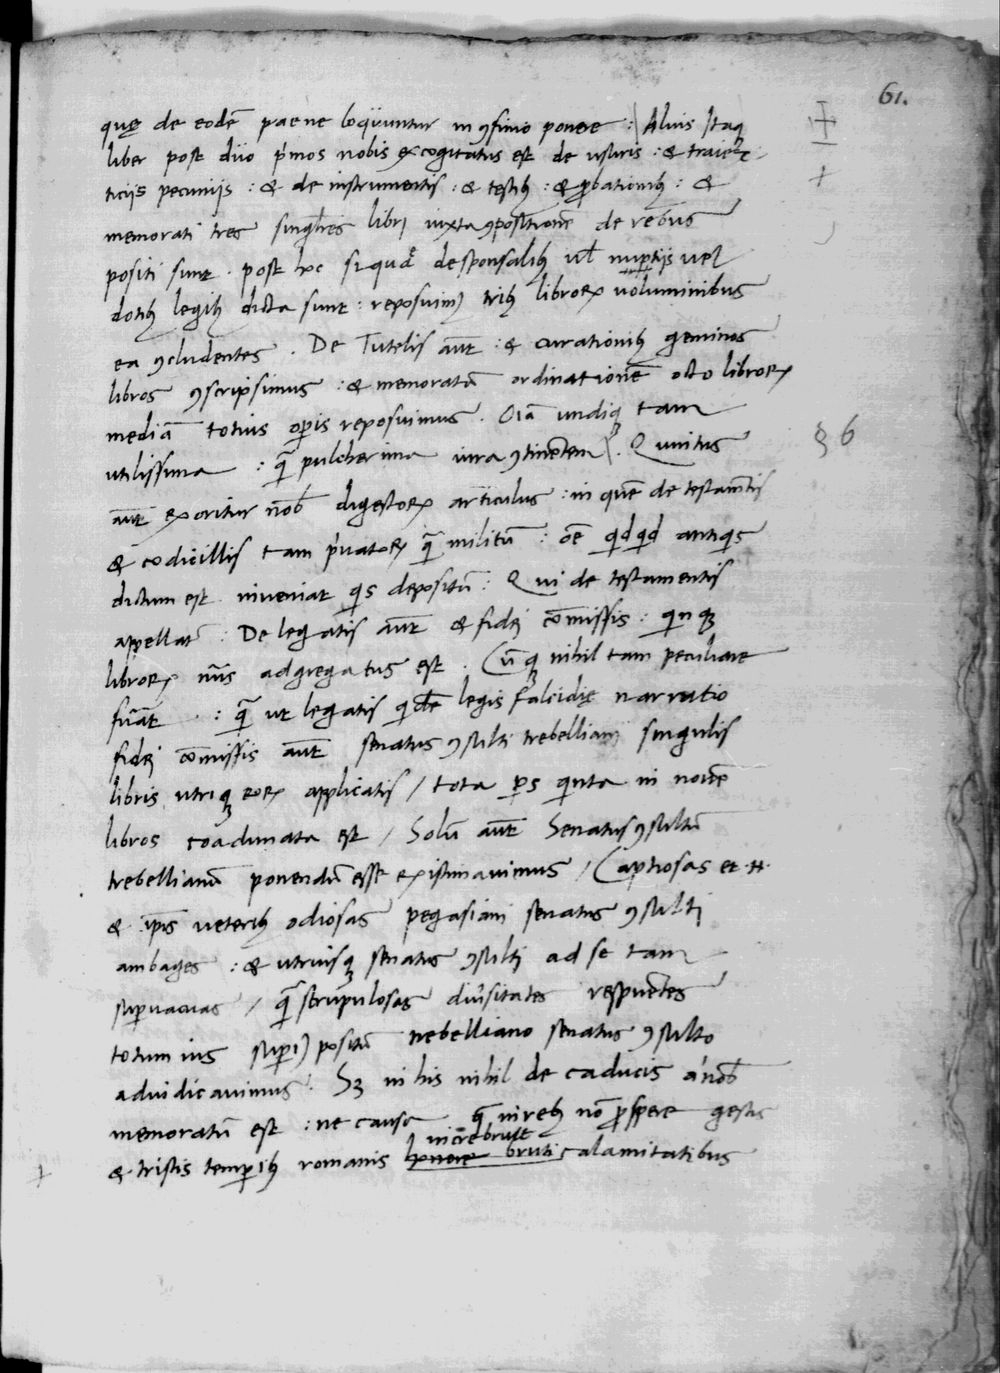 61.
quę de eodē paene loquuntur in ꝯfinio ponere : Aluis Itaq
liber post duo p'mos nobis excogitatus est de usuris : & traiec
ticiis pecuniis : & de instrumentis : & testibꝫ : & ꝓbationibꝫ : &
memorati tres singlares libri iuxta ꝯpositionē de rebus
positi sunt . post hoc siqua desponsalibꝫ ul nuptijs uel
dotibꝫ legibꝫ dicta sunt : reposuimꝰ tribꝫ libroꝝ uoluminibus
ea ꝯcludentes . De Tutelis aut̄ : & curationibꝫ geminos
libros ꝯscripsimus : & memoratū ordinationē octo libroꝝ
mediā totius oꝑis reposuimus . Oīa undiqꝫ tam
utilissima : qā pulcherrima iura ꝯtinentem . Quintus
aut̄ exoritur nob̄ digestoꝝ articulus : in quē de testam̄tis
& codicillis tam p'uatoꝝ qā militū : oē qdqd antiqis
dictum est inueniat qis depositū : Qui de testamentis
appellat̄ : De legatis aut̄ & fidei cōmissis : qinqꝫ
libroꝝ nūs adgregatus est . Cūqꝫ nihil tam peculiare
fuāt : qā ut legatis qidē legis falcidię narratio
fidei cōmissis aut̄ senatus ꝯsulti trebelliani singulis
libris utriqꝫ eoꝝ applicatis / tota ꝑs qinta in nouē
libros coadunata est / Solū aut̄ Senatus ꝯsultū
trebellianū ponendū esse existimauimus / Captiosas et .H.
& ip̄is ueteribꝫ odiosas pegasiani senatus ꝯsulti
ambages : & utriusqꝫ senatus ꝯsulti ad se tam
suꝑuacuas / qā scrupulosas diu'sitates respuentes
totum ius suꝑ iꝰ positū trebelliano senatus ꝯsulto
adiudicauimus . Sꝫ in his nihil de caducis a'nob̄
memoratū est : ne causa q̄ in rebꝫ nō ꝓspere gestis
& tristis temꝑibꝫ romanis increbruit bruti calamitatibus
§ 6